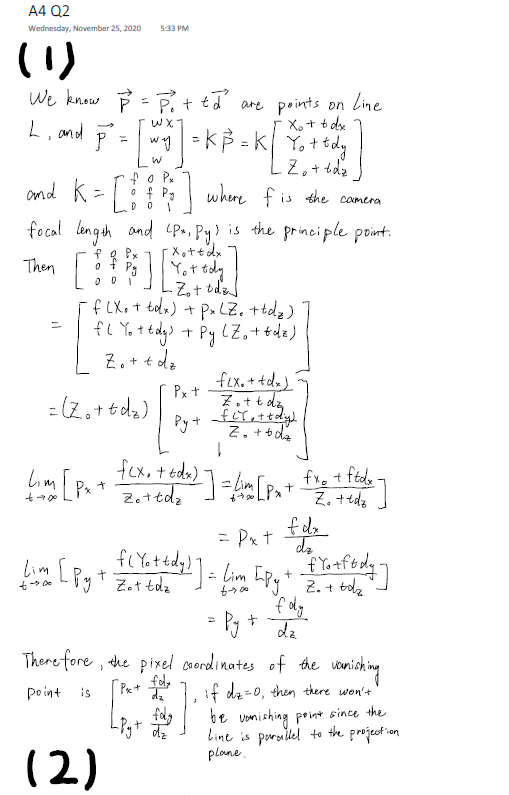 A4 Q2
Wednesday, November 25, 2020 5:33 PM
(1)
We know p⃗ = p⃗₀ + td⃗ are points on line
L, and p⃗ = [wx; wy; w] = K p⃗ = K [X₀ + tdx; Y₀ + tdy; Z₀ + tdz]
and K = [f 0 Px; 0 f Py; 0 0 1] where f is the camera
focal length and (Px, Py) is the principle point.
Then [f 0 Px; 0 f Py; 0 0 1] [X₀ + tdx; Y₀ + tdy; Z₀ + tdz]
= [f(X₀ + tdx) + Px(Z₀ + tdz); f(Y₀ + tdy) + Py(Z₀ + tdz); Z₀ + tdz]
= (Z₀ + tdz) [Px + f(X₀ + tdx)/(Z₀ + tdz); Py + f(Y₀ + tdy)/(Z₀ + tdz); 1]
lim t→∞ [Px + f(X₀ + tdx)/(Z₀ + tdz)] = lim t→∞ [Px + (fX₀ + ftdx)/(Z₀ + tdz)]
= Px + fdx/dz
lim t→∞ [Py + f(Y₀ + tdy)/(Z₀ + tdz)] = lim t→∞ [Py + (fY₀ + ftdy)/(Z₀ + tdz)]
= Py + fdy/dz
Therefore, the pixel coordinates of the vanishing
point is [Px + fdx/dz; Py + fdy/dz], if dz=0, then there won't
be vanishing point since the
line is parallel to the projection
plane.
(2)